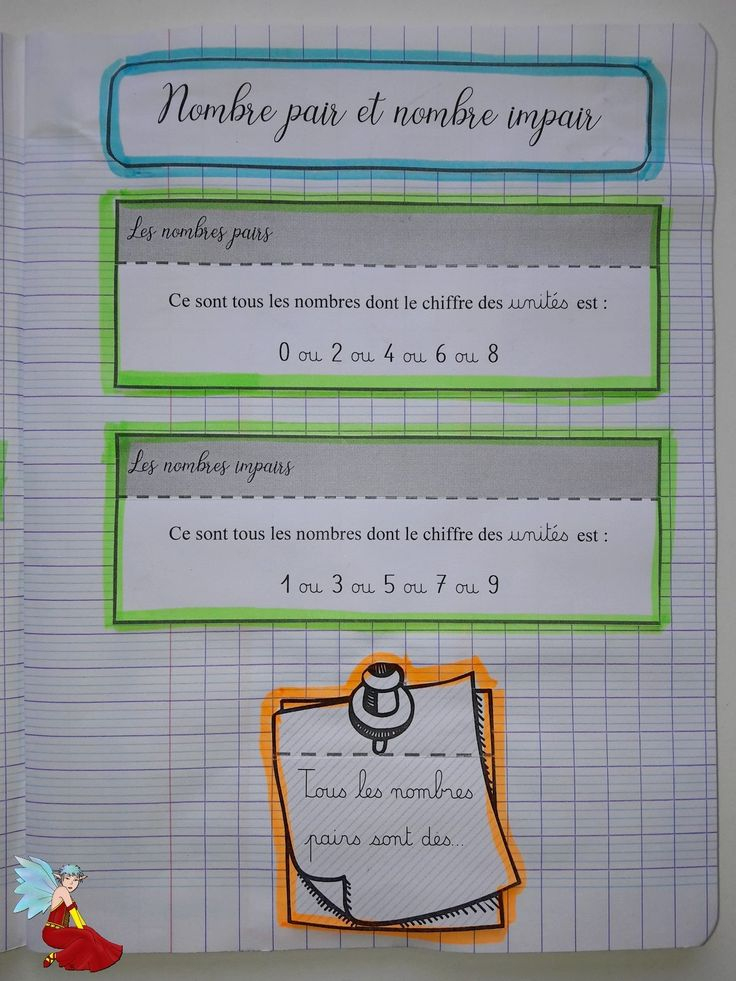 Nombre pair et nombre impair
Les nombres pairs
Ce sont tous les nombres dont le chiffre des unités est :
0 ou 2 ou 4 ou 6 ou 8
Les nombres impairs
Ce sont tous les nombres dont le chiffre des unités est :
1 ou 3 ou 5 ou 7 ou 9
Tous les nombres
pairs sont des...